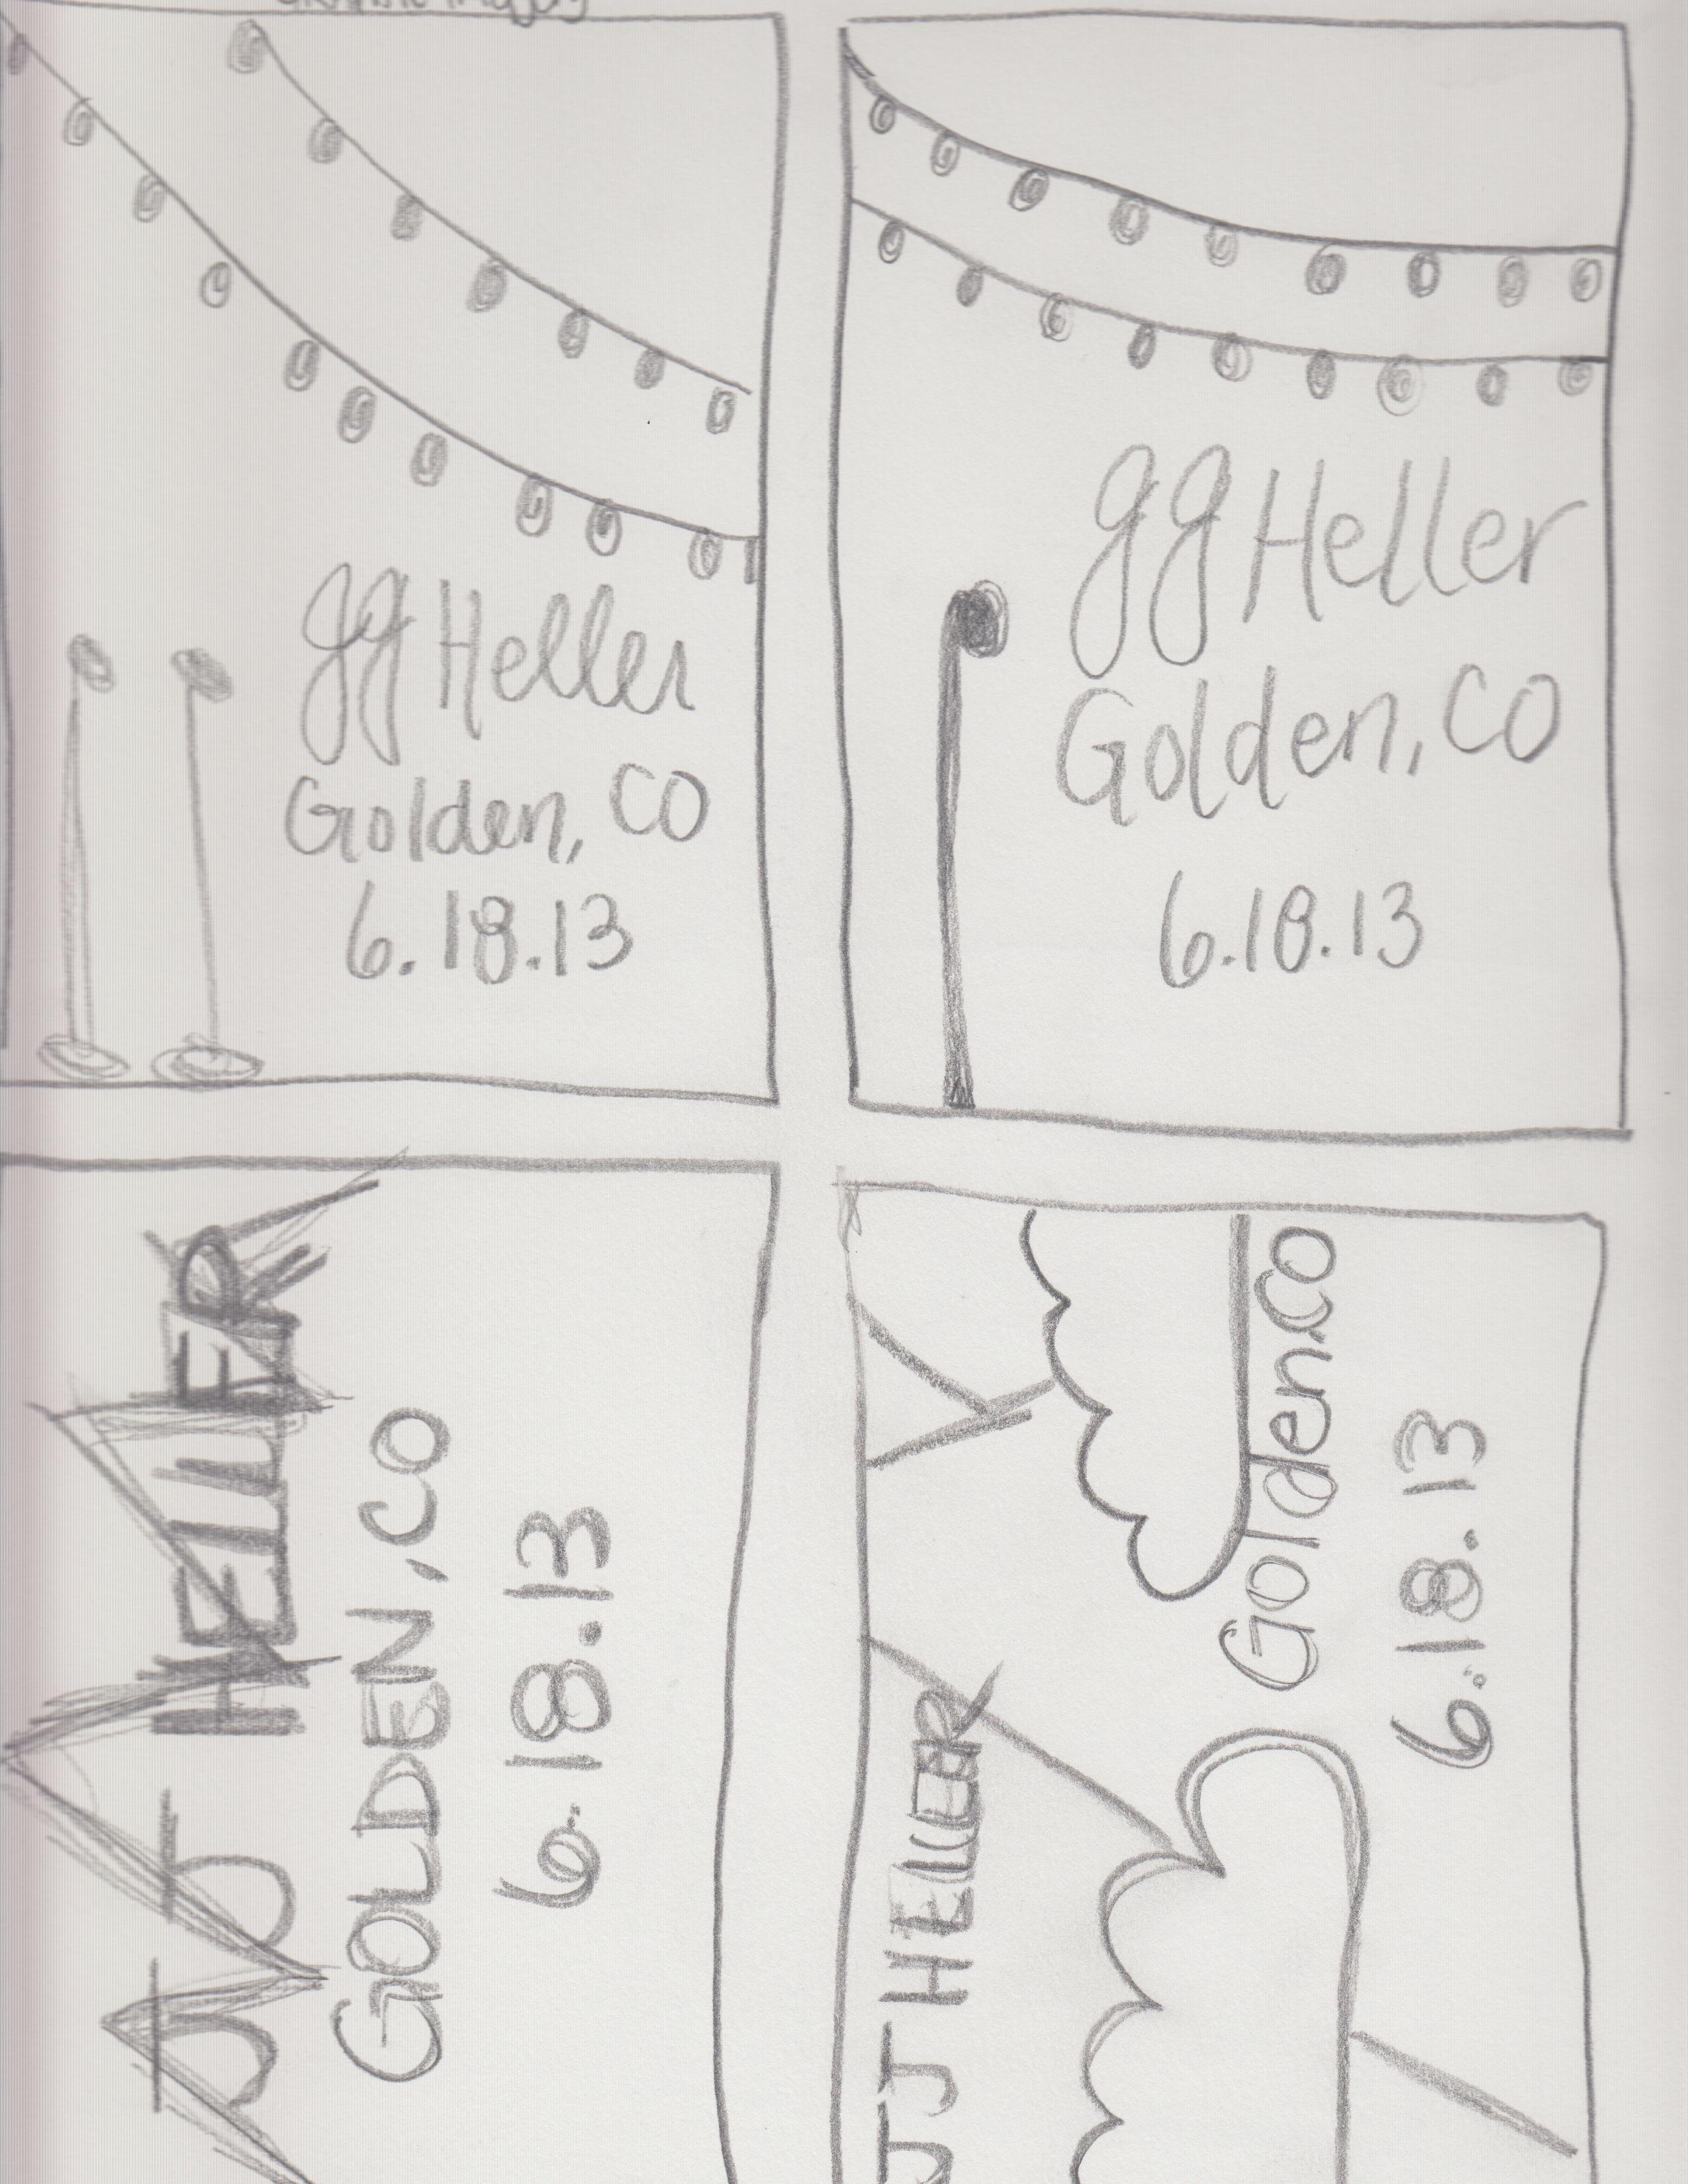 JJ Heller
Golden, CO
6.18.13
JJ Heller
Golden, CO
6.18.13
JJ HELLER
GOLDEN, CO
6.18.13
JJ HELLER
Golden, CO
6.18.13